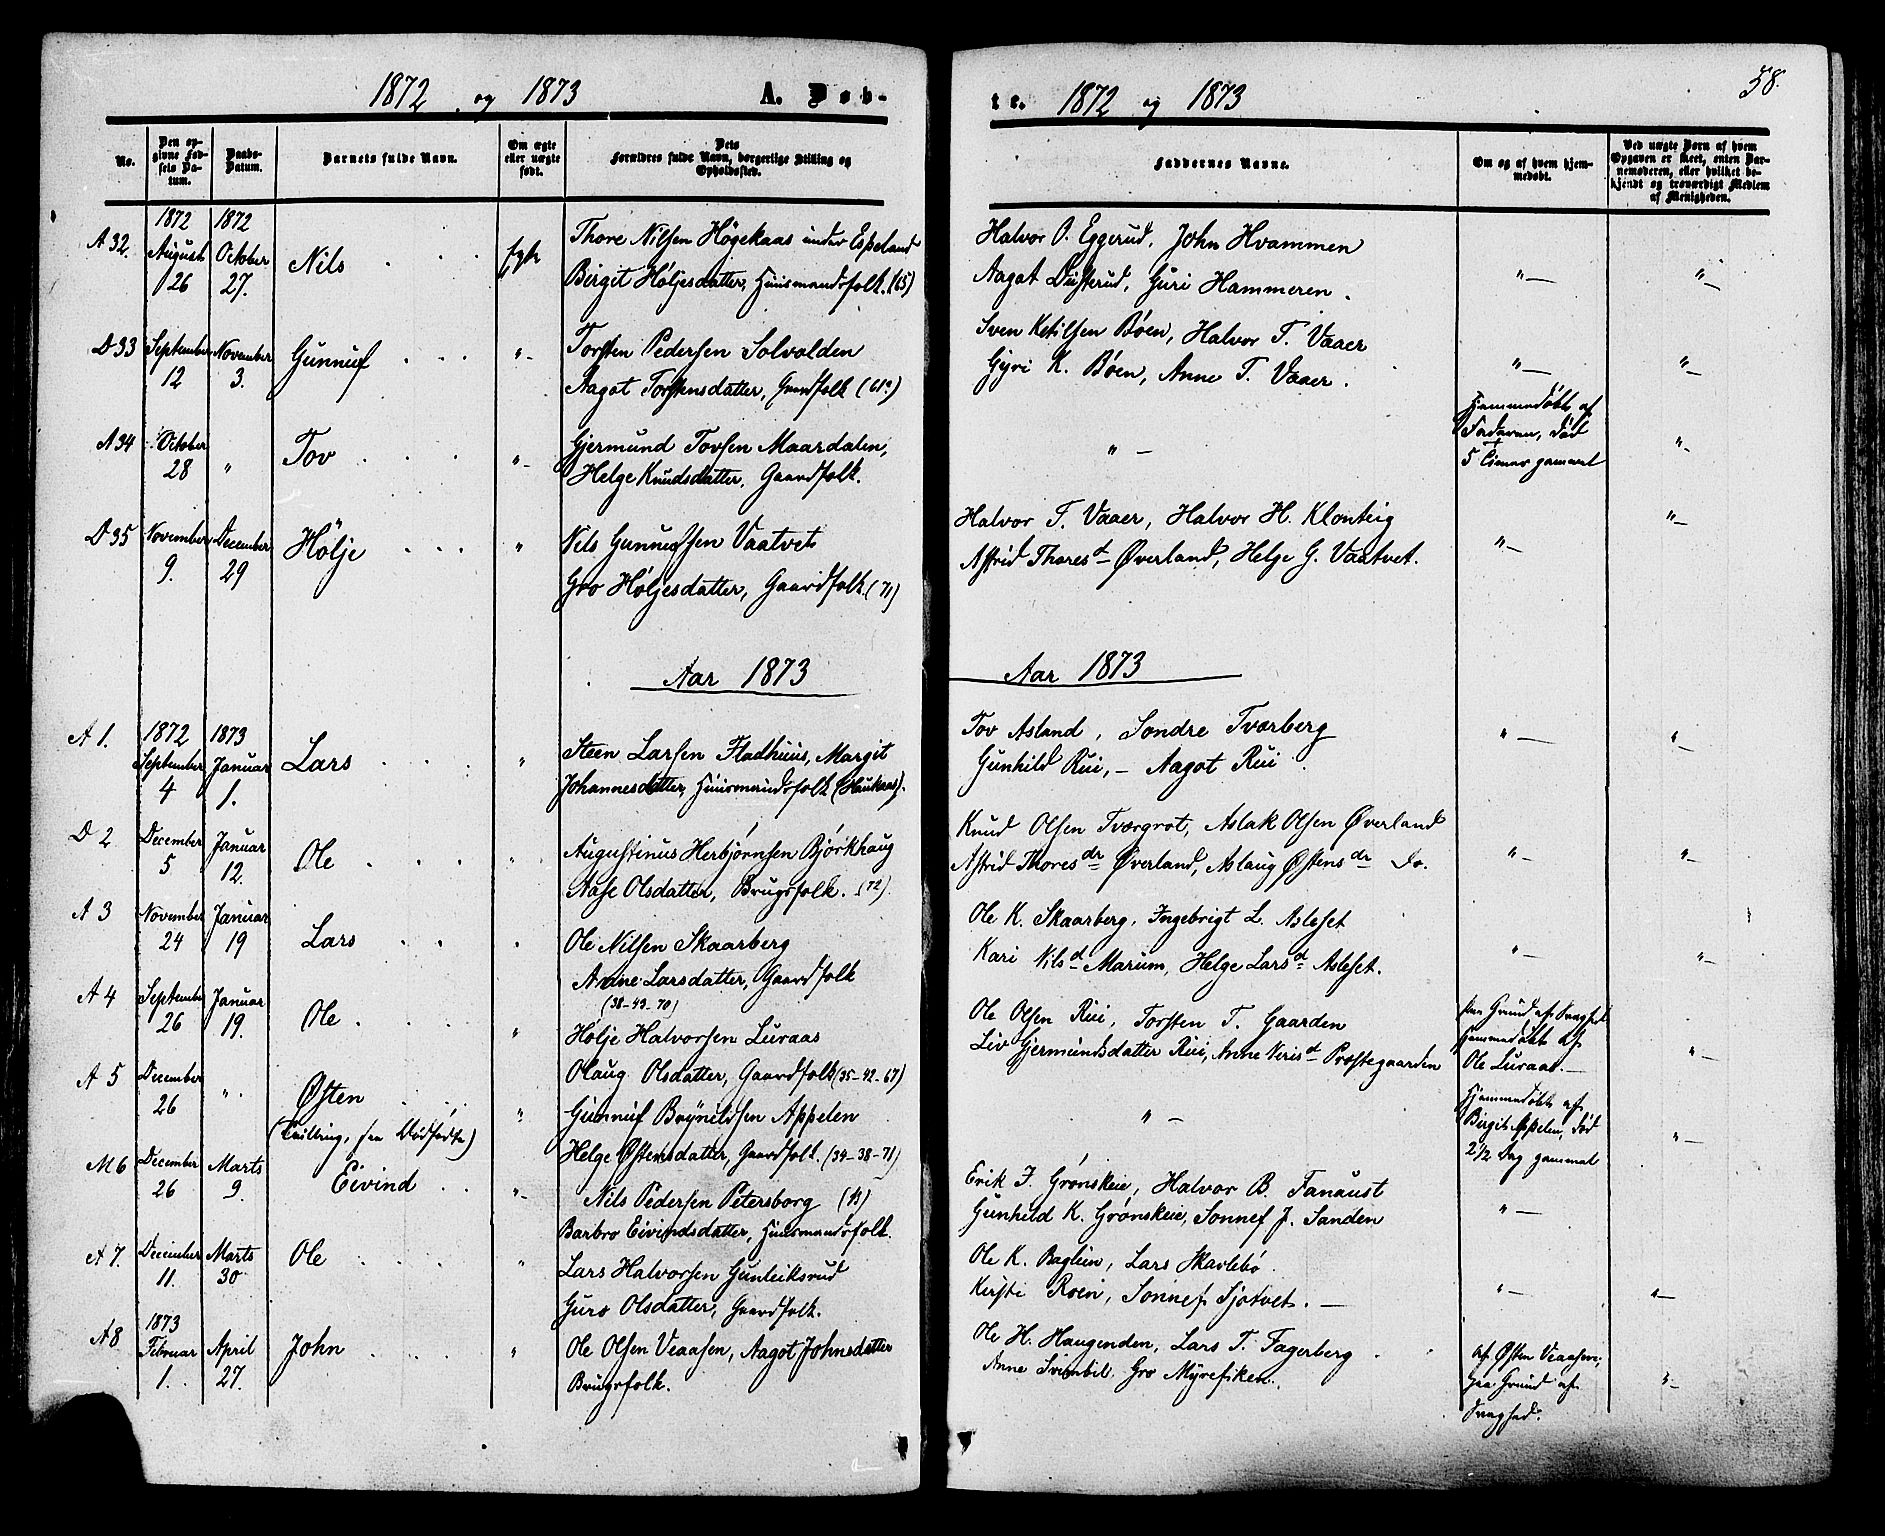 1872 og 1873 A. Døb-
No.
Den op-
givne Fød-
sels Da-
tum.
Daabs-
Datum.
Barnets fulde Navn.
Om ægte
eller uægte
født.
Dets
Forældres fulde Navn, borgerlige Stilling og
Opholdssted.
A 32. 1872 August 26 1872 October 27. Nils ægte
Thore Nilsen Högekaas under Espeland
Birgit Höljesdatter, Huusmandsfolk. (65)
D 33 September 12 November 3. Gunnuf "-
Torsten Pedersen Solvolden
Aagot Torstensdatter, Gaardfolk
A 34 October 28 " Tov "-
Gjermund Tovsen Maardalen,
Helge Knudsdatter, Gaardfolk.
D 35 November 9. December 29 Hölje "
Nils Gunnufsen Vaatvet
Gro Höljesdatter, Gaardfolk. (71)
Aar 1873
A 1. 1872 September 4 1873 Januar 1. Lars "
Steen Larsen Fladhuus, Margit
Johannesdatter, Huusmandsfolk (Haukaas).
D 2 December 5 Januar 12. Ole "
Augustinus Herbjørnsen Bjørkhaug
Aase Olsdatter, Brugsfolk. (72).
A 3 November 24 Januar 19 Lars "
Ole Nilsen Skaarberg
Anne Larsdatter, Gaardfolk
(38-43-70)
A 4 September 26 Januar 19. Ole "
Holje Halvorsen Luraas
Olaug Olsdatter, Gaardfolk (35-42-67)
A 5 December 26 " Østen "
(Tvilling, see Dødfødte)
Gunnuf Brynildsen Appelen
Helge Østensdatter, Gaardfolk. (34-38-71)
A 6 December 26 Marts 9. Eivind "-
Nils Pedersen Petersborg
Barbro Eivindsdatter, Huusmandsfolk.
A 7. December 11. Marts 30 Ole "
Lars Halvorsen Gunleiksrud
Guro Olsdatter, Gaardfolk.
A 8 1873 Februar 1. April 27. John "
Ole Olsen Veaasen, Aagot Johnsdatter
Brugsfolk.
te. 1872 og 1873
58.
Faddernes Navne.
Om og af hvem hjem-
medøbt.
Ved uægte Børn af hvem
Opgaven er skeet, enten Bar-
nemoderen, eller hvilket be-
kjendt og troværdigt Medlem
af Menigheden.
Halvor O. Eggerud, John Hvammen
Aagot Düsterud, Guri Hammeren.
"- "-
Sven Ketilsen Bøen, Halvor T. Vaaer
Gyri K. Bøen, Anne T. Vaaer.
"- "-
"-
Hjemmedøbt af
Faderen, død
5 Timer gammel
"-
Halvor T. Vaaer, Halvor H. Klonteig
Astrid Thoresd Øverland, Helge G. Vaatvet.
"- "-
Aar 1873
Tov Asland, Sondre Tværberg
Gunhild Rui, - Aagot Rui
"- "-
Knud Olsen Tværgrot, Aslak Olsen Øverland
Astrid Thoresdr Øverland, Aslaug Østensdr do.
"- "-
Ole K. Skaarberg, Ingebrigt L. Asleset
Kari Nilsd Marum, Helge Larsd Asleset.
"- "-
Ole Olsen Rui, Torsten T. Gaarden
Liv Gjermundsdatter Rui, Anne Verisd Præstegaarden
paa Grund af Svaghed
hjemmedøbt af
Ole Luraas.
"-
"-
Hjemmedøbt af
Birgit Appelen, død
2 1/2 Dag gammel
"-
Erik J. Grønskeie, Halvor B. Fanaust
Gunhild K. Grønskeie, Sonnef J. Sanden
"-
Ole K. Bagluin, Lars Skarlebø.
Kirsti Roen, Sonnef Sjotvet.
"- "-
Ole H. Haugenden, Lars T. Fagerberg
Anne Svimbil, Gro Myrefiken.
af Østen Veaasen,
paa Grund af
Svaghed.
"-